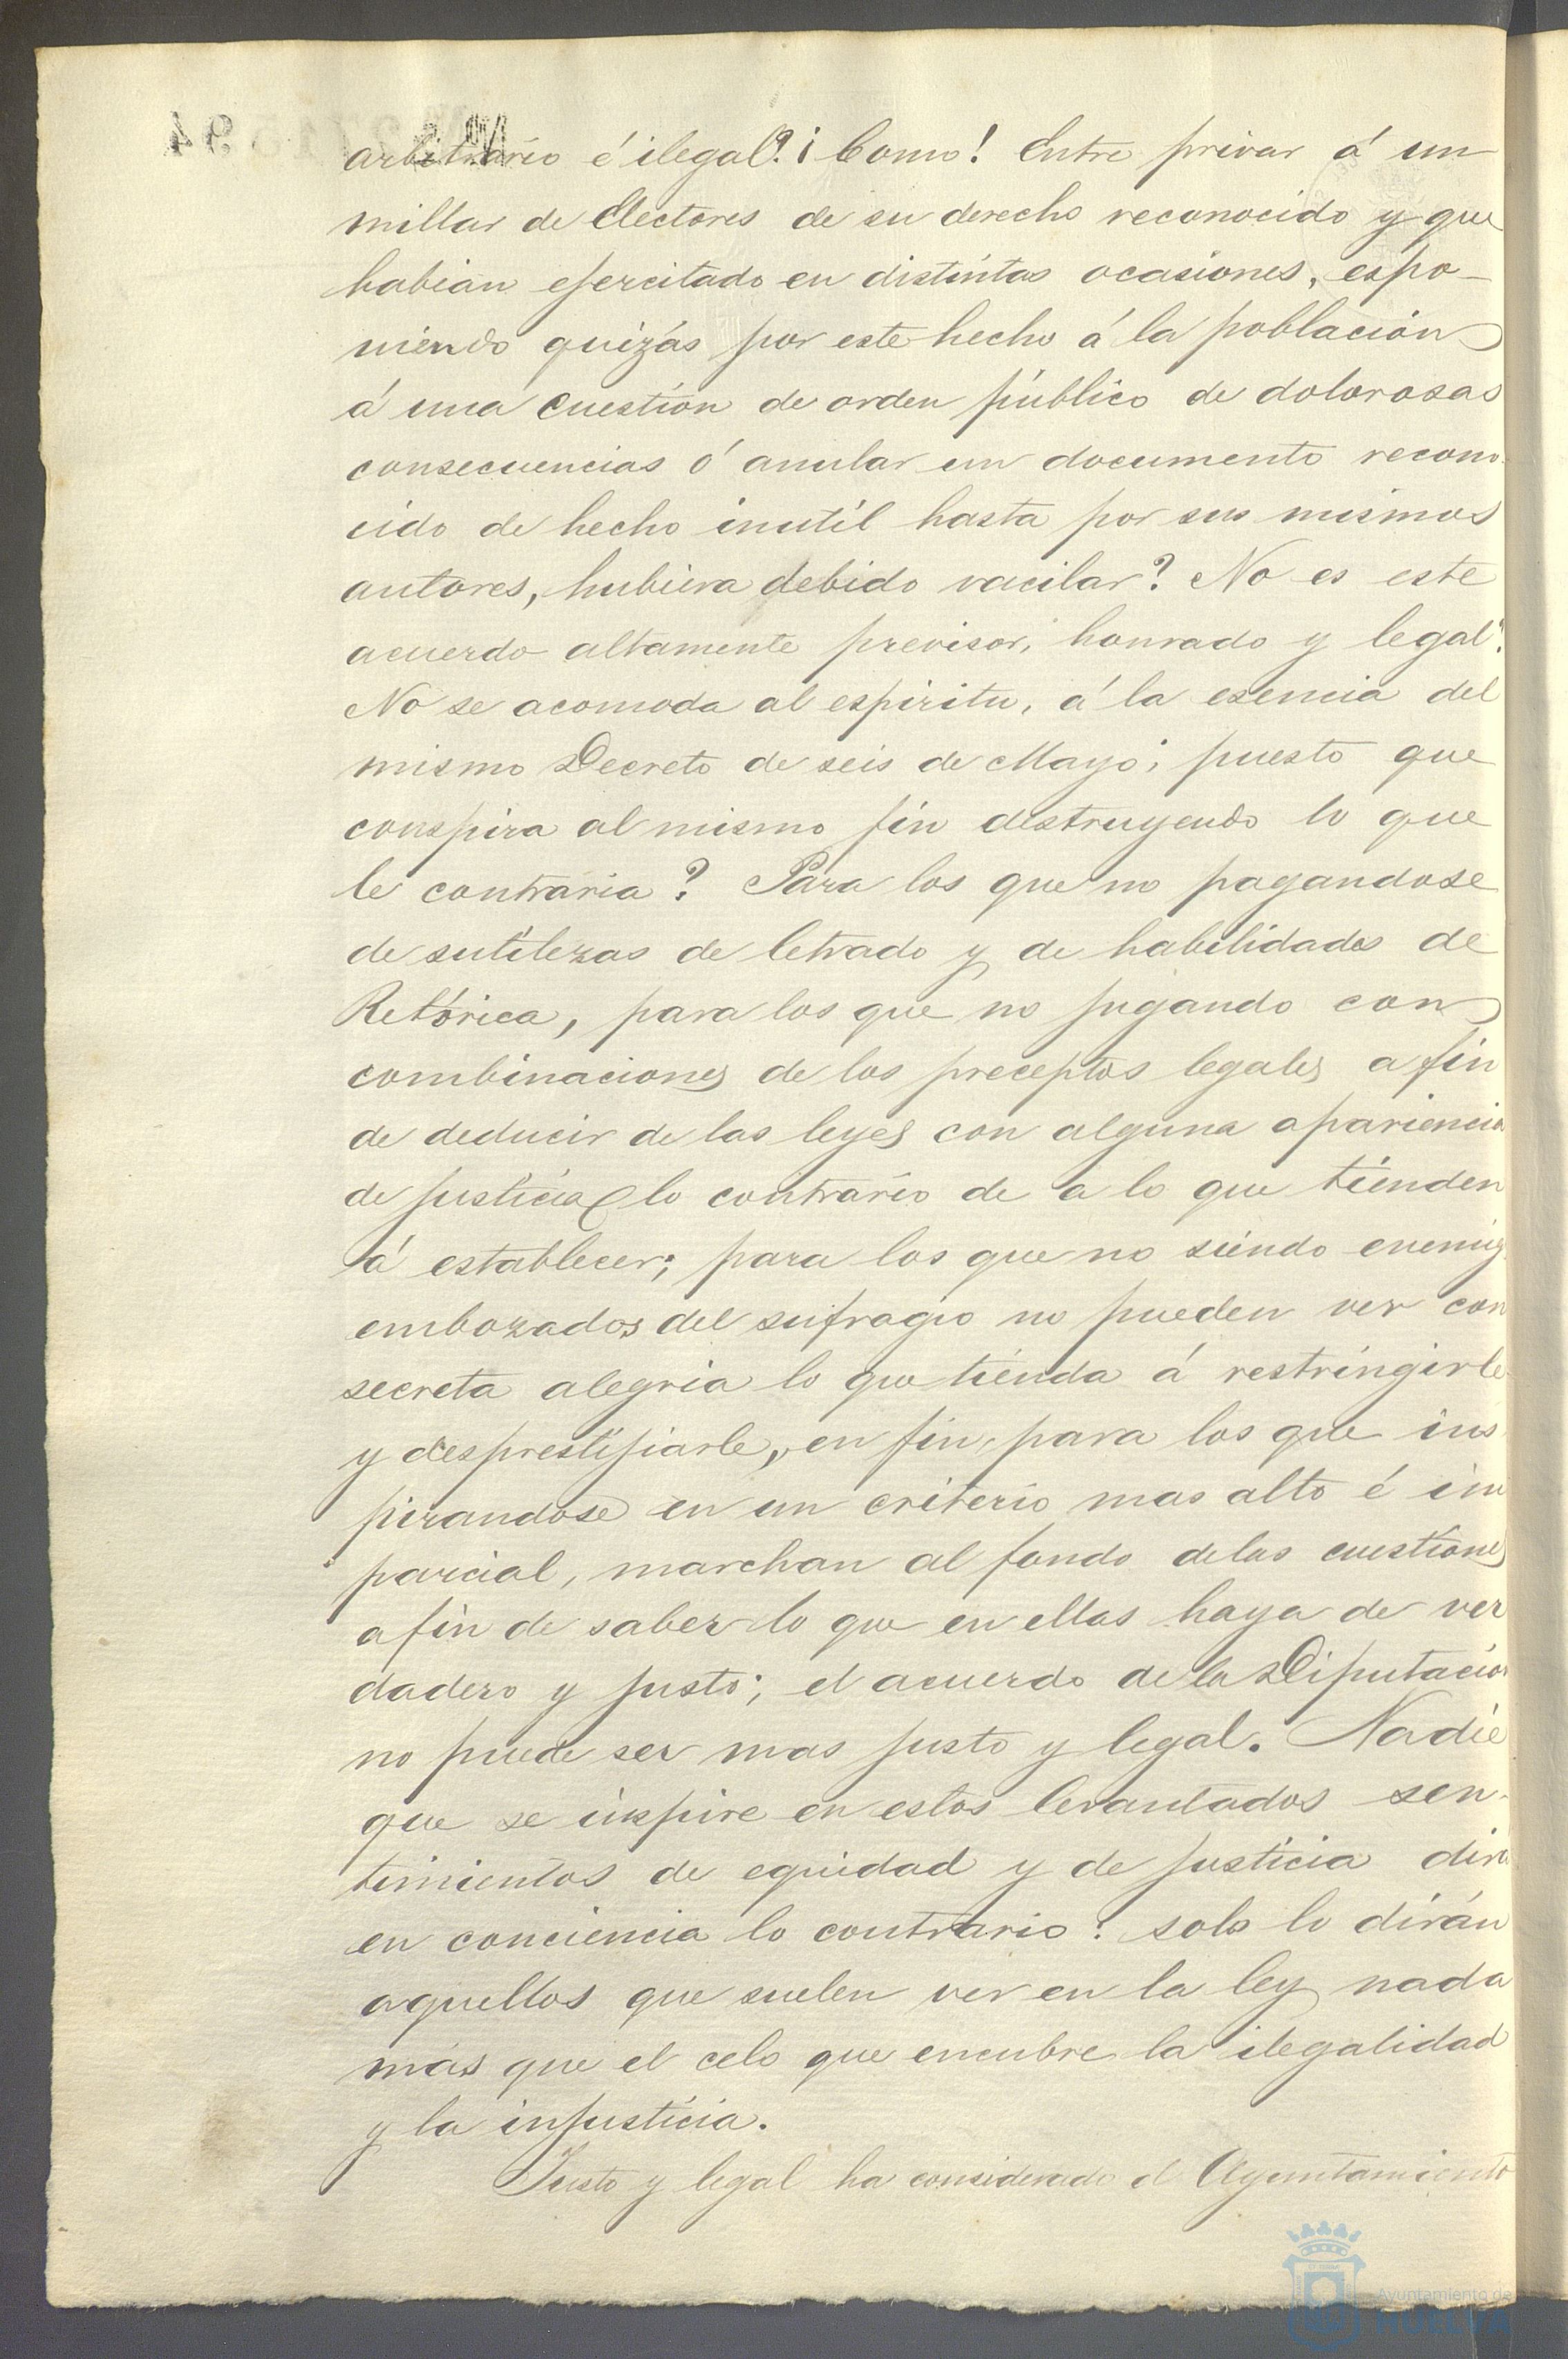 arbitrario é ilegal? ¡Como! Entre privar á un
millar de Electores de su derecho reconocido y que
habian ejercitado en distintas ocasiones, espo-
niendo quizás por este hecho á la población
á una cuestión de orden público de dolorosas
consecuencias ó anular un documento recono
cido de hecho inutil hasta por sus mismos
autores, hubiera debido vacilar? No es este
acuerdo altamente previsor, honrado y legal?
No se acomoda al espiritu, á la esencia del
mismo Decreto de seis de Mayo; puesto que
conspira al mismo fin destruyendo lo que
le contraria? Para los que no pagandose
de sutilezas de letrado y de habilidades de
Retórica, para los que no jugando con
combinaciones de los preceptos legales a fin
de deducir de las leyes con alguna apariencia
de justicia lo contrario de a lo que tienden
á establecer; para los que no siendo enemig
embozados del sufragio no pueden ver con
secreta alegria lo que tienda á restringirle
y desprestijiarle, en fin, para los que ins
pirandose en un criterio mas alto é im
parcial, marchan al fondo de las cuestiones
a fin de saber lo que en ellas haya de ver
dadero y justo; el acuerdo de la Diputacion
no puede ser mas justo y legal. Nadie
que se inspire en estos levantados sen-
timientos de equidad y de justicia dira
en conciencia lo contrario: solo lo dirán
aquellos que suelen ver en la ley nada
más que el celo que encubre la ilegalidad
y la injusticia.
Justo y legal ha considerado el Ayuntamiento
Ayuntamiento de
HUELVA